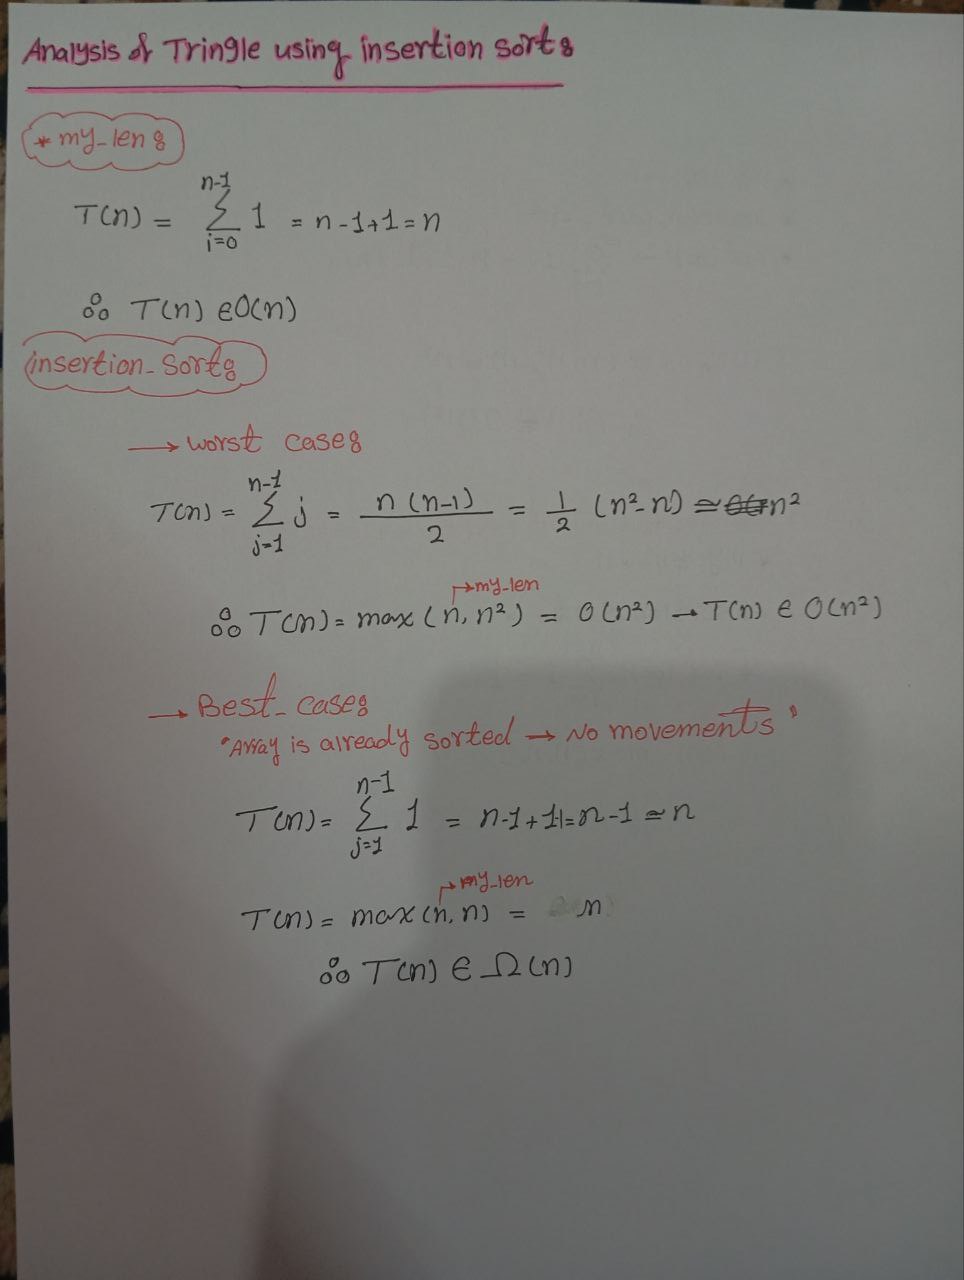 Analysis of Tringle using insertion sort:
* my_len:
T(n) = \sum_{i=0}^{n-1} 1 = n-1+1 = n
∴ T(n) ∈ O(n)
insertion_sort:
→ worst case:
T(n) = \sum_{j=1}^{n-1} j = \frac{n(n-1)}{2} = \frac{1}{2} (n²-n) ≃ n²
→ my_len
∴ T(n) = max(n, n²) = O(n²) → T(n) ∈ O(n²)
→ Best_case:
"Array is already sorted → No movements"
T(n) = \sum_{j=1}^{n-1} 1 = n-1+1-1 = n-1 ≃ n
→ my_len
T(n) = max(n, n) = n
∴ T(n) ∈ Ω(n)